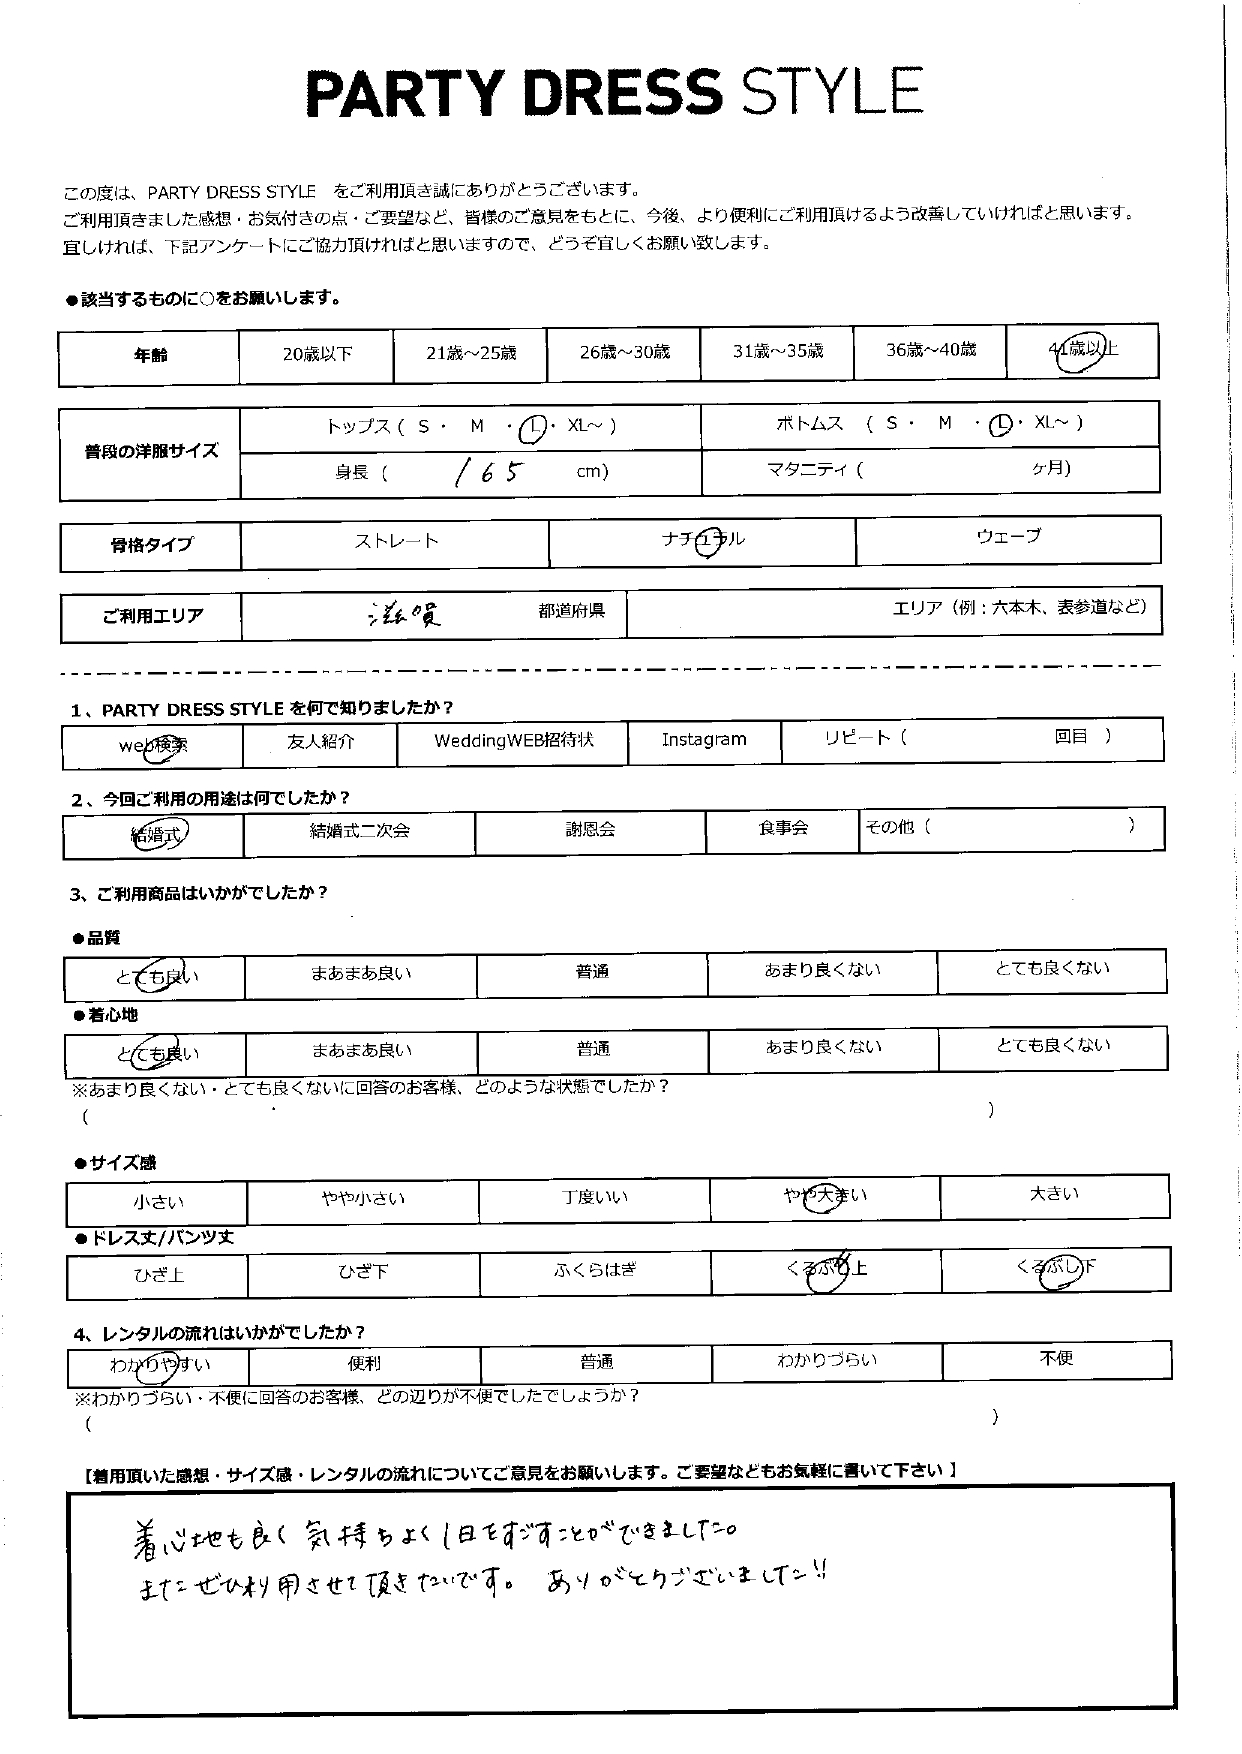 PARTY DRESS STYLE
この度は、PARTY DRESS STYLE をご利用頂き誠にありがとうございます。
ご利用頂きました感想・お気付きの点・ご要望など、皆様のご意見をもとに、今後、より便利にご利用頂けるよう改善していければと思います。
宜しければ、下記アンケートにご協力頂ければと思いますので、どうぞ宜しくお願い致します。
●該当するものに○をお願いします。
年齢 20歳以下 21歳～25歳 26歳～30歳 31歳～35歳 36歳～40歳 41歳以上
普段の洋服サイズ トップス ( S ・ M ・ L ・ XL～ ) ボトムス ( S ・ M ・ L ・ XL～ )
身長 ( 165 cm) マタニティ ( ヶ月)
骨格タイプ ストレート ナチュラル ウェーブ
ご利用エリア 滋賀 都道府県 エリア（例：六本木、表参道など）
1、PARTY DRESS STYLE を何で知りましたか？
web検索 友人紹介 WeddingWEB招待状 Instagram リピート ( 回目 )
2、今回ご利用の用途は何でしたか？
結婚式 結婚式二次会 謝恩会 食事会 その他 ( )
3、ご利用商品はいかがでしたか？
●品質
とても良い まあまあ良い 普通 あまり良くない とても良くない
●着心地
とても良い まあまあ良い 普通 あまり良くない とても良くない
※あまり良くない・とても良くないに回答のお客様、どのような状態でしたか？
( )
●サイズ感
小さい やや小さい 丁度いい やや大きい 大きい
●ドレス丈/パンツ丈
ひざ上 ひざ下 ふくらはぎ くるぶし上 くるぶし下
4、レンタルの流れはいかがでしたか？
わかりやすい 便利 普通 わかりづらい 不便
※わかりづらい・不便に回答のお客様、どの辺りが不便でしたでしょうか？
( )
【着用頂いた感想・サイズ感・レンタルの流れについてご意見をお願いします。ご要望などもお気軽に書いて下さい】
着心地も良く 気持ちよく1日をすごすことができました。
またぜひ利用させて頂きたいです。 ありがとうございました!!